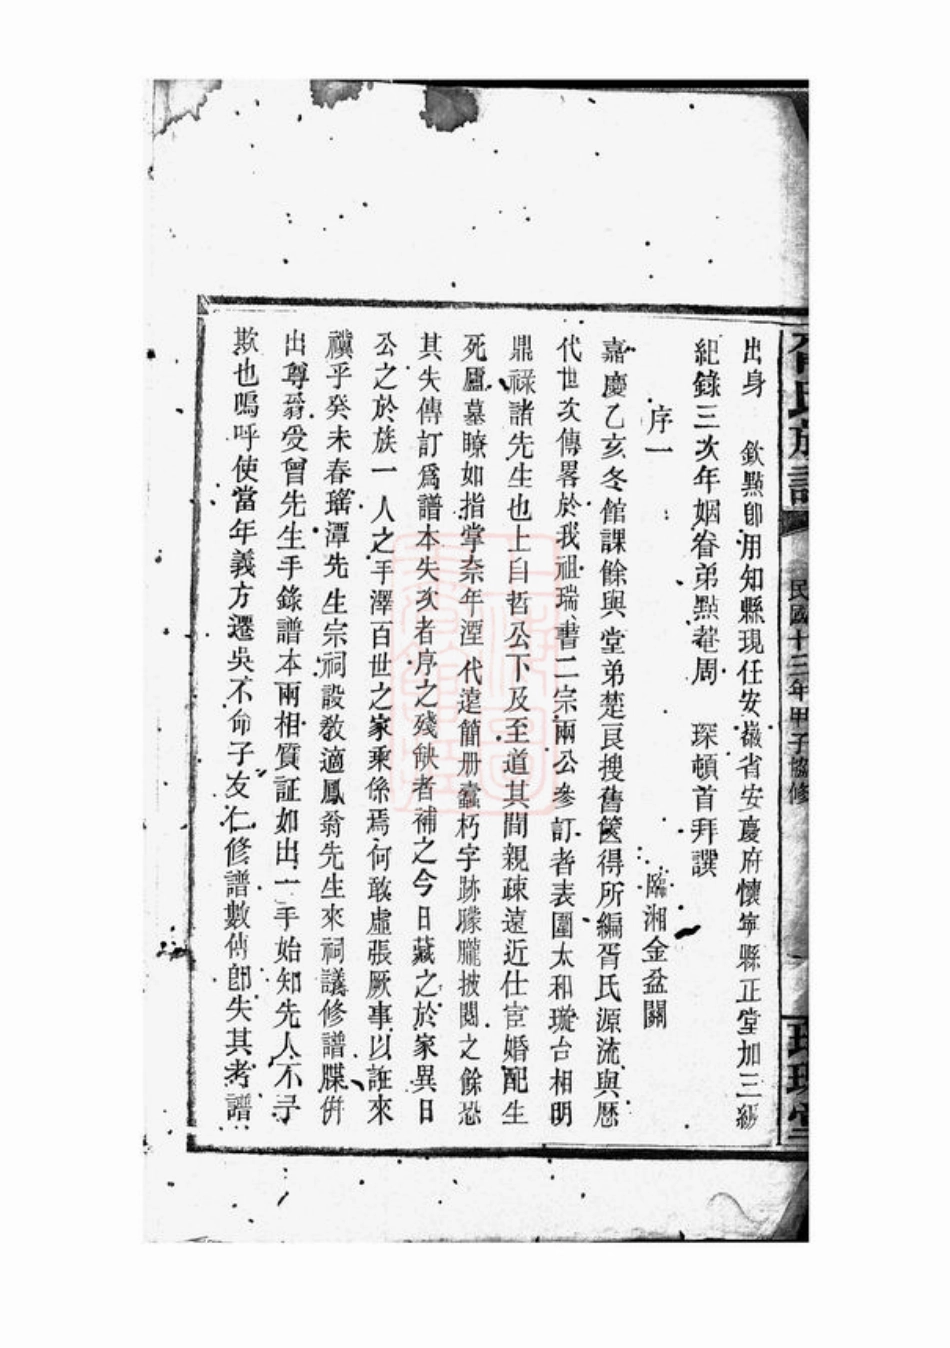 胥氏族譜
民國十三年甲子協修
出身　欽點卽用知縣現任安徽省安慶府懷寧縣正堂加三級
紀錄三次年姻眷弟點菴周　琛頓首拜譔
序一
臨湘金盆關
嘉慶乙亥冬館課餘與堂弟楚良搜舊篋得所編胥氏源流與歷
代世次傳畧於我祖瑞書二宗兩公參訂者表圍太和璇台相明
鼎祿諸先生也上自哲公下及至道其間親疎遠近仕宦婚配生
死廬墓瞭如指掌奈年湮代遠簡册蠹朽字跡朦朧披閱之餘恐
其失傳訂爲譜本失次者序之殘缺者補之今日藏之於家異日
公之於族一人之手澤百世之家乘係焉何敢虛張厥事以誑來
禩乎癸未春瑤潭先生宗祠設敎適鳳翁先生來祠議修譜牒倂
出尊翁受曾先生手錄譜本兩相質証如出一手始知先人不予
欺也嗚呼使當年義方遷吳不命子友仁修譜數傳卽失其考譜